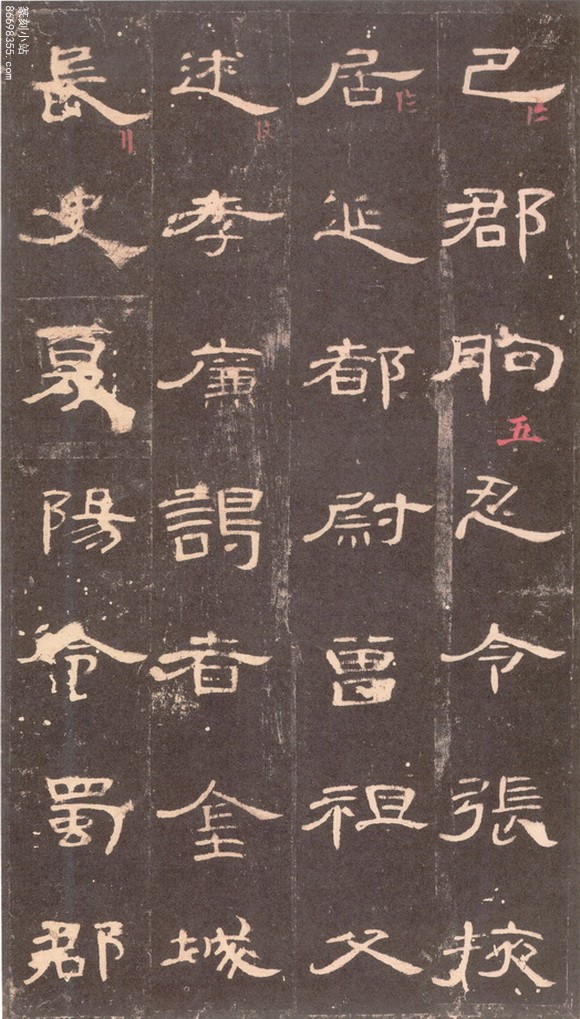 巴郡朐忍令張掖
居延都尉曾祖父
述孝廉謁者金城
長史夏陽令蜀郡
五
篆刻小站
86698355.com